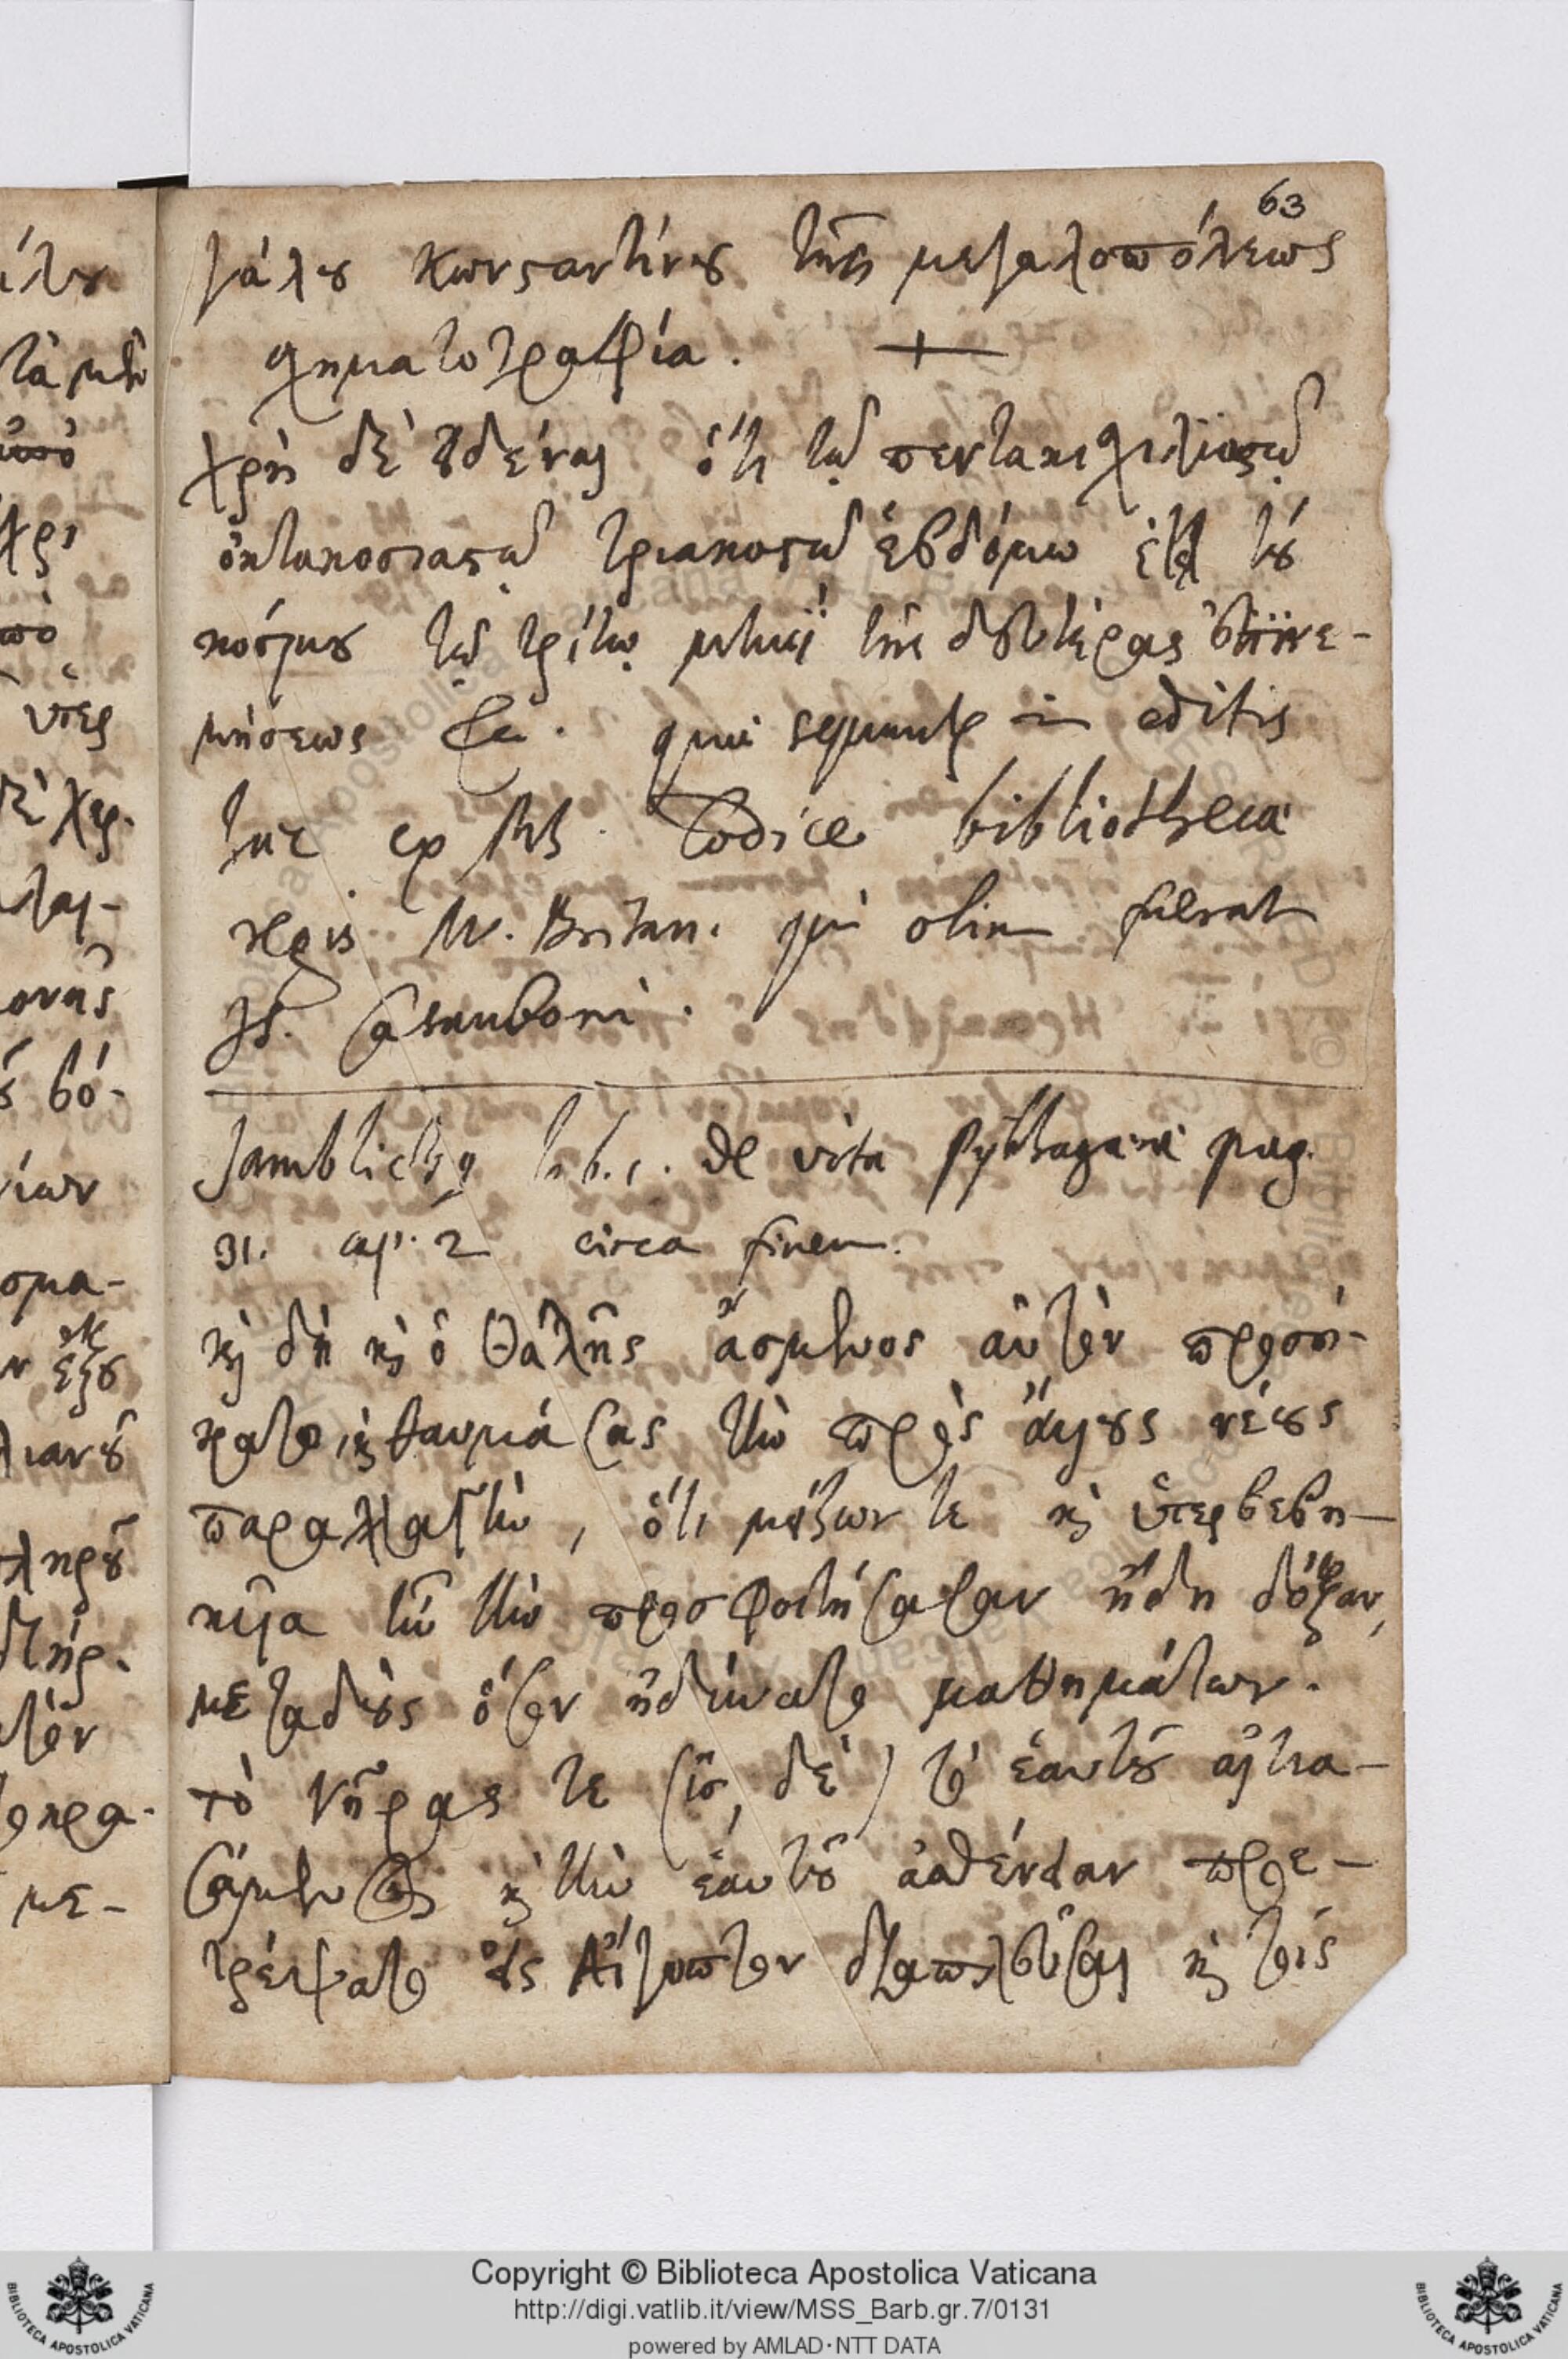 63
γάλου Κωνσαντίνου τῆς μεγαλοπόλεως
χηματογραφία. +
χρὴ δὲ εἰδέναι ὅτι τῷ πεντακιχιλιοστῷ
ὀκτακοσιαστῷ τριακοστῷ ἑβδόμῳ ἔτει τοῦ
κόσμου τῷ τρίτῳ μηνὶ τῆς δευτέρας ἐπινε-
μήσεως &c. quae sequunt in editis
haec ex MS. Codice bibliothecae
regis M. Britan. qui olim fuerat
Is. Casauboni.
Jamblichus lib. 1. de vita Pythagorae pag.
31. cap. 2 circa finem.
καὶ δὴ καὶ ὁ Θάλης ἄσμενος αὐτὸν προσή-
κατο, καὶ θαυμάσας τὴν πρὸς ἄλλους νέους
παραλλαγὴν, ὅτι μείζων τε καὶ ὑπερβεβη-
κυῖα ἦν τὴν προσφοιτήσασαν ἤδη δόξαν,
μεταδούς ὅσων ἠδύνατο μαθημάτων.
τὸ γῆρας τε (ἴσ, δὲ) τὸ ἑαυτοῦ αἰτια-
σάμενος καὶ τὴν ἑαυτοῦ ἀσθένειαν προε-
τρέψατο εἰς Αἴγυπτον διαπλεῦσαι καὶ τοῖς
Copyright © Biblioteca Apostolica Vaticana
http://digi.vatlib.it/view/MSS_Barb.gr.7/0131
powered by AMLAD·NTT DATA